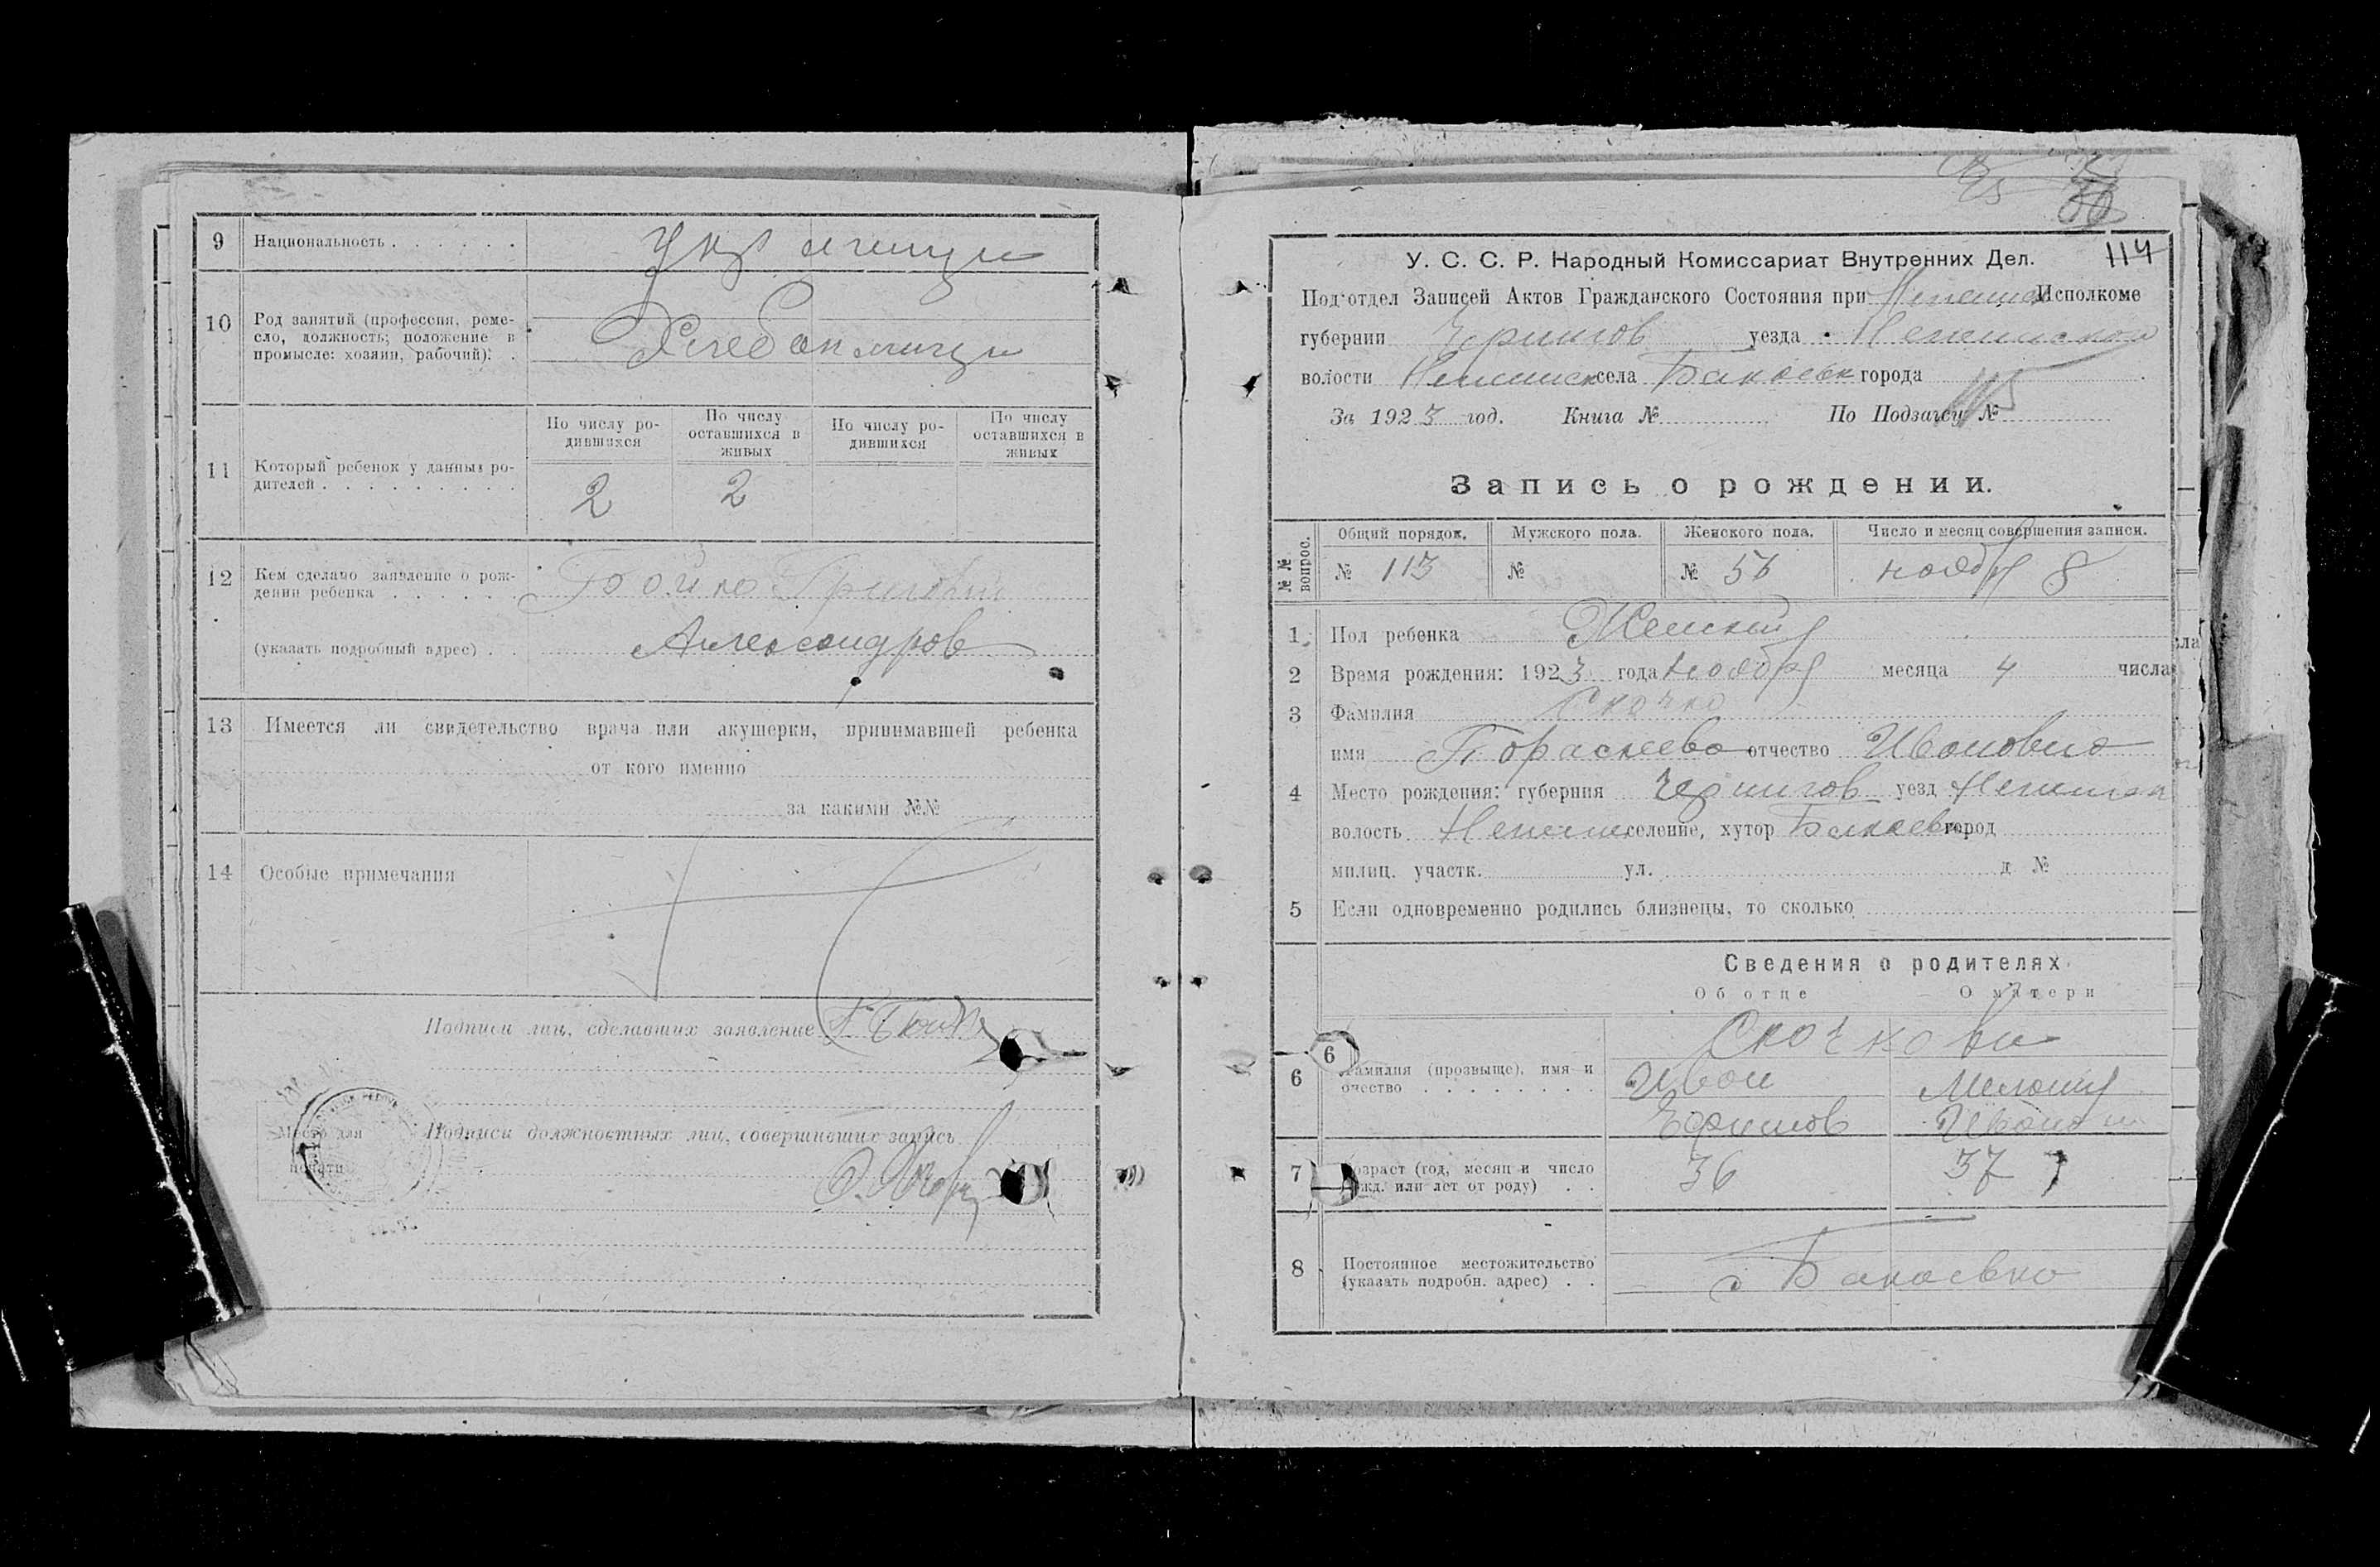 9 Национальность
10 Род занятий (профессия, реме-
сло, должность; положение в
промысле: хозяин, рабочий):
11 Который ребенок у данных ро-
дителей
По числу ро-
дившихся
По числу
оставшихся в
живых
По числу ро-
дившихся
По числу
оставшихся в
живых
2 2
12 Кем сделано заявление о рож-
дении ребенка Бойко
(указать подробный адрес) Александров
13 Имеется ли свидетельство врача или акушерки, принимавшей ребенка
от кого именно
за какими №№
14 Особые примечания
Подписи лиц, сделавших заявление
Место для
печати
Подписи должностных лиц, совершивших запись
114
У. С. С. Р. Народный Комиссариат Внутренних Дел.
Под'отдел Записей Актов Гражданского Состояния при Исполкоме
губернии Чернигов уезда
волости села Бакаевк города
За 1923 год. Книга № По Подзагсу №
115
Запись о рождении.
№№ вопрос.
Общий порядок. Мужского пола. Женского пола. Число и месяц совершения записи.
№ 113 № № 56 ноябр 8
1 Пол ребенка Женский
2 Время рождения: 1923 года ноябр месяца 4 числа
3 Фамилия Скочко
имя Тораскева отчество Ивановна
4 Место рождения: губерния Чернигов уезд
волость селение, хутор Бакаевк город
милиц. участк. ул. д №
5 Если одновременно родились близнецы, то сколько
Сведения о родителях
Об отце О матери
6 Фамилия (прозвыще), имя и
очество
Скочкови
Иван
Ефимов
7 Возраст (год, месяц и число
рожд. или лет от роду) 36 37
8 Постоянное местожительство
(указать подробн. адрес)
с Бакаевка